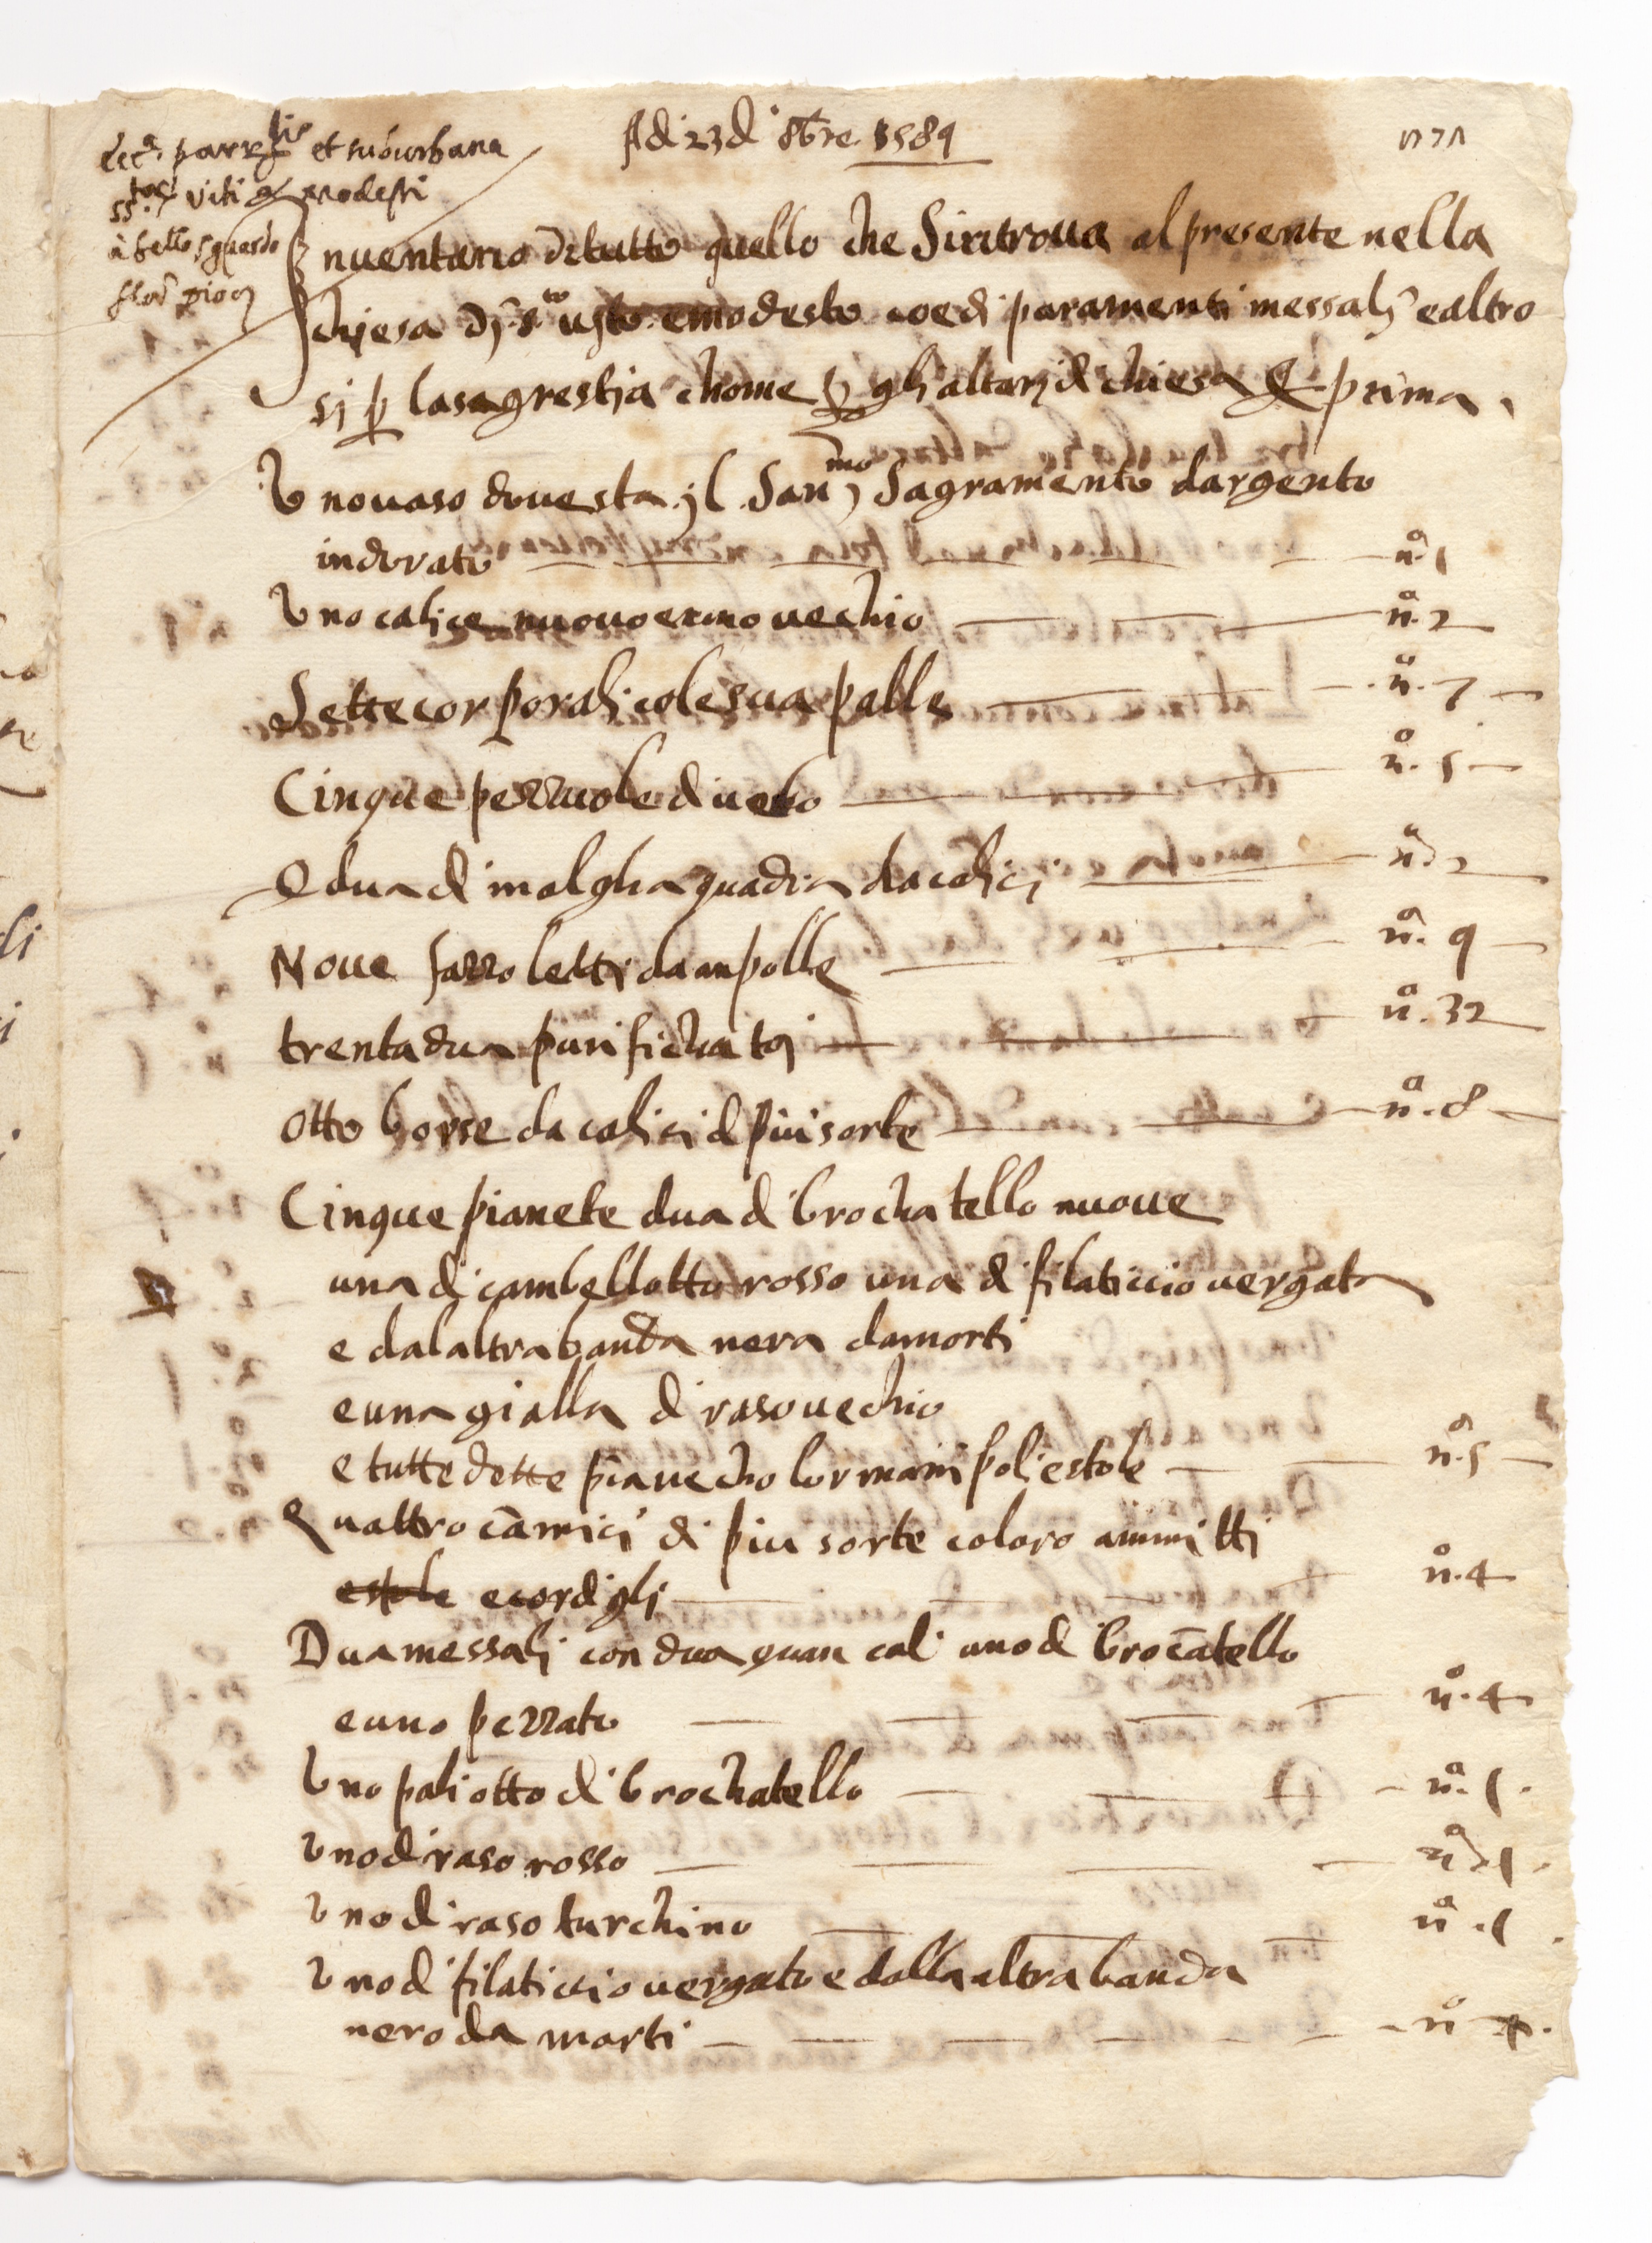 Adi 23 di 8bre 1589
Ecc.a parr.lis et suburbana
ss.tor Viti & modesti
à bello sguardo
Inuentario di tutto quello che Siritroua al presente nella
chiesa di s.to uito e modesto coe di paramenti messalj e altro
sj p lasagrestia chome p gli altarj di chiesa & prima
Vno uaso doue sta jl San.mo Sagramento dargento
indorato n.o 1
Vno calice nuouo e uno uechio n.o 2
Sette corporalj cole sua palle n.o 7
Cinque pezzuole di uelo n.o 5
E dua di molgha quadra da calici n.o 2
Noue fazzoletti da anpolle n.o 9
trenta dua purifichatoj n.o 32
otto borse da calici di piu sorte n.o 8
Cinque pianete dua di brochatello nuoue
una di cambellotto rosso una di filaticcio vergato
e dalaltra banda nera da morti
e una gialla di raso uechio
e tutte dette piane cho lor manipoli e stole n.o 5
Quattro camici di piu sorte coloro ammitti
estole e cordiglj n.o 4
Dua messalj con dua guan cali uno di brocatello
e uno pezzato n.o 4
Vno paliotto di brochatello n.o 1
Vno di raso rosso n.o 1
Vno di raso turchino n.o 1
Vno di filaticcio uergato e dalla altra banda
nero da morti n.o